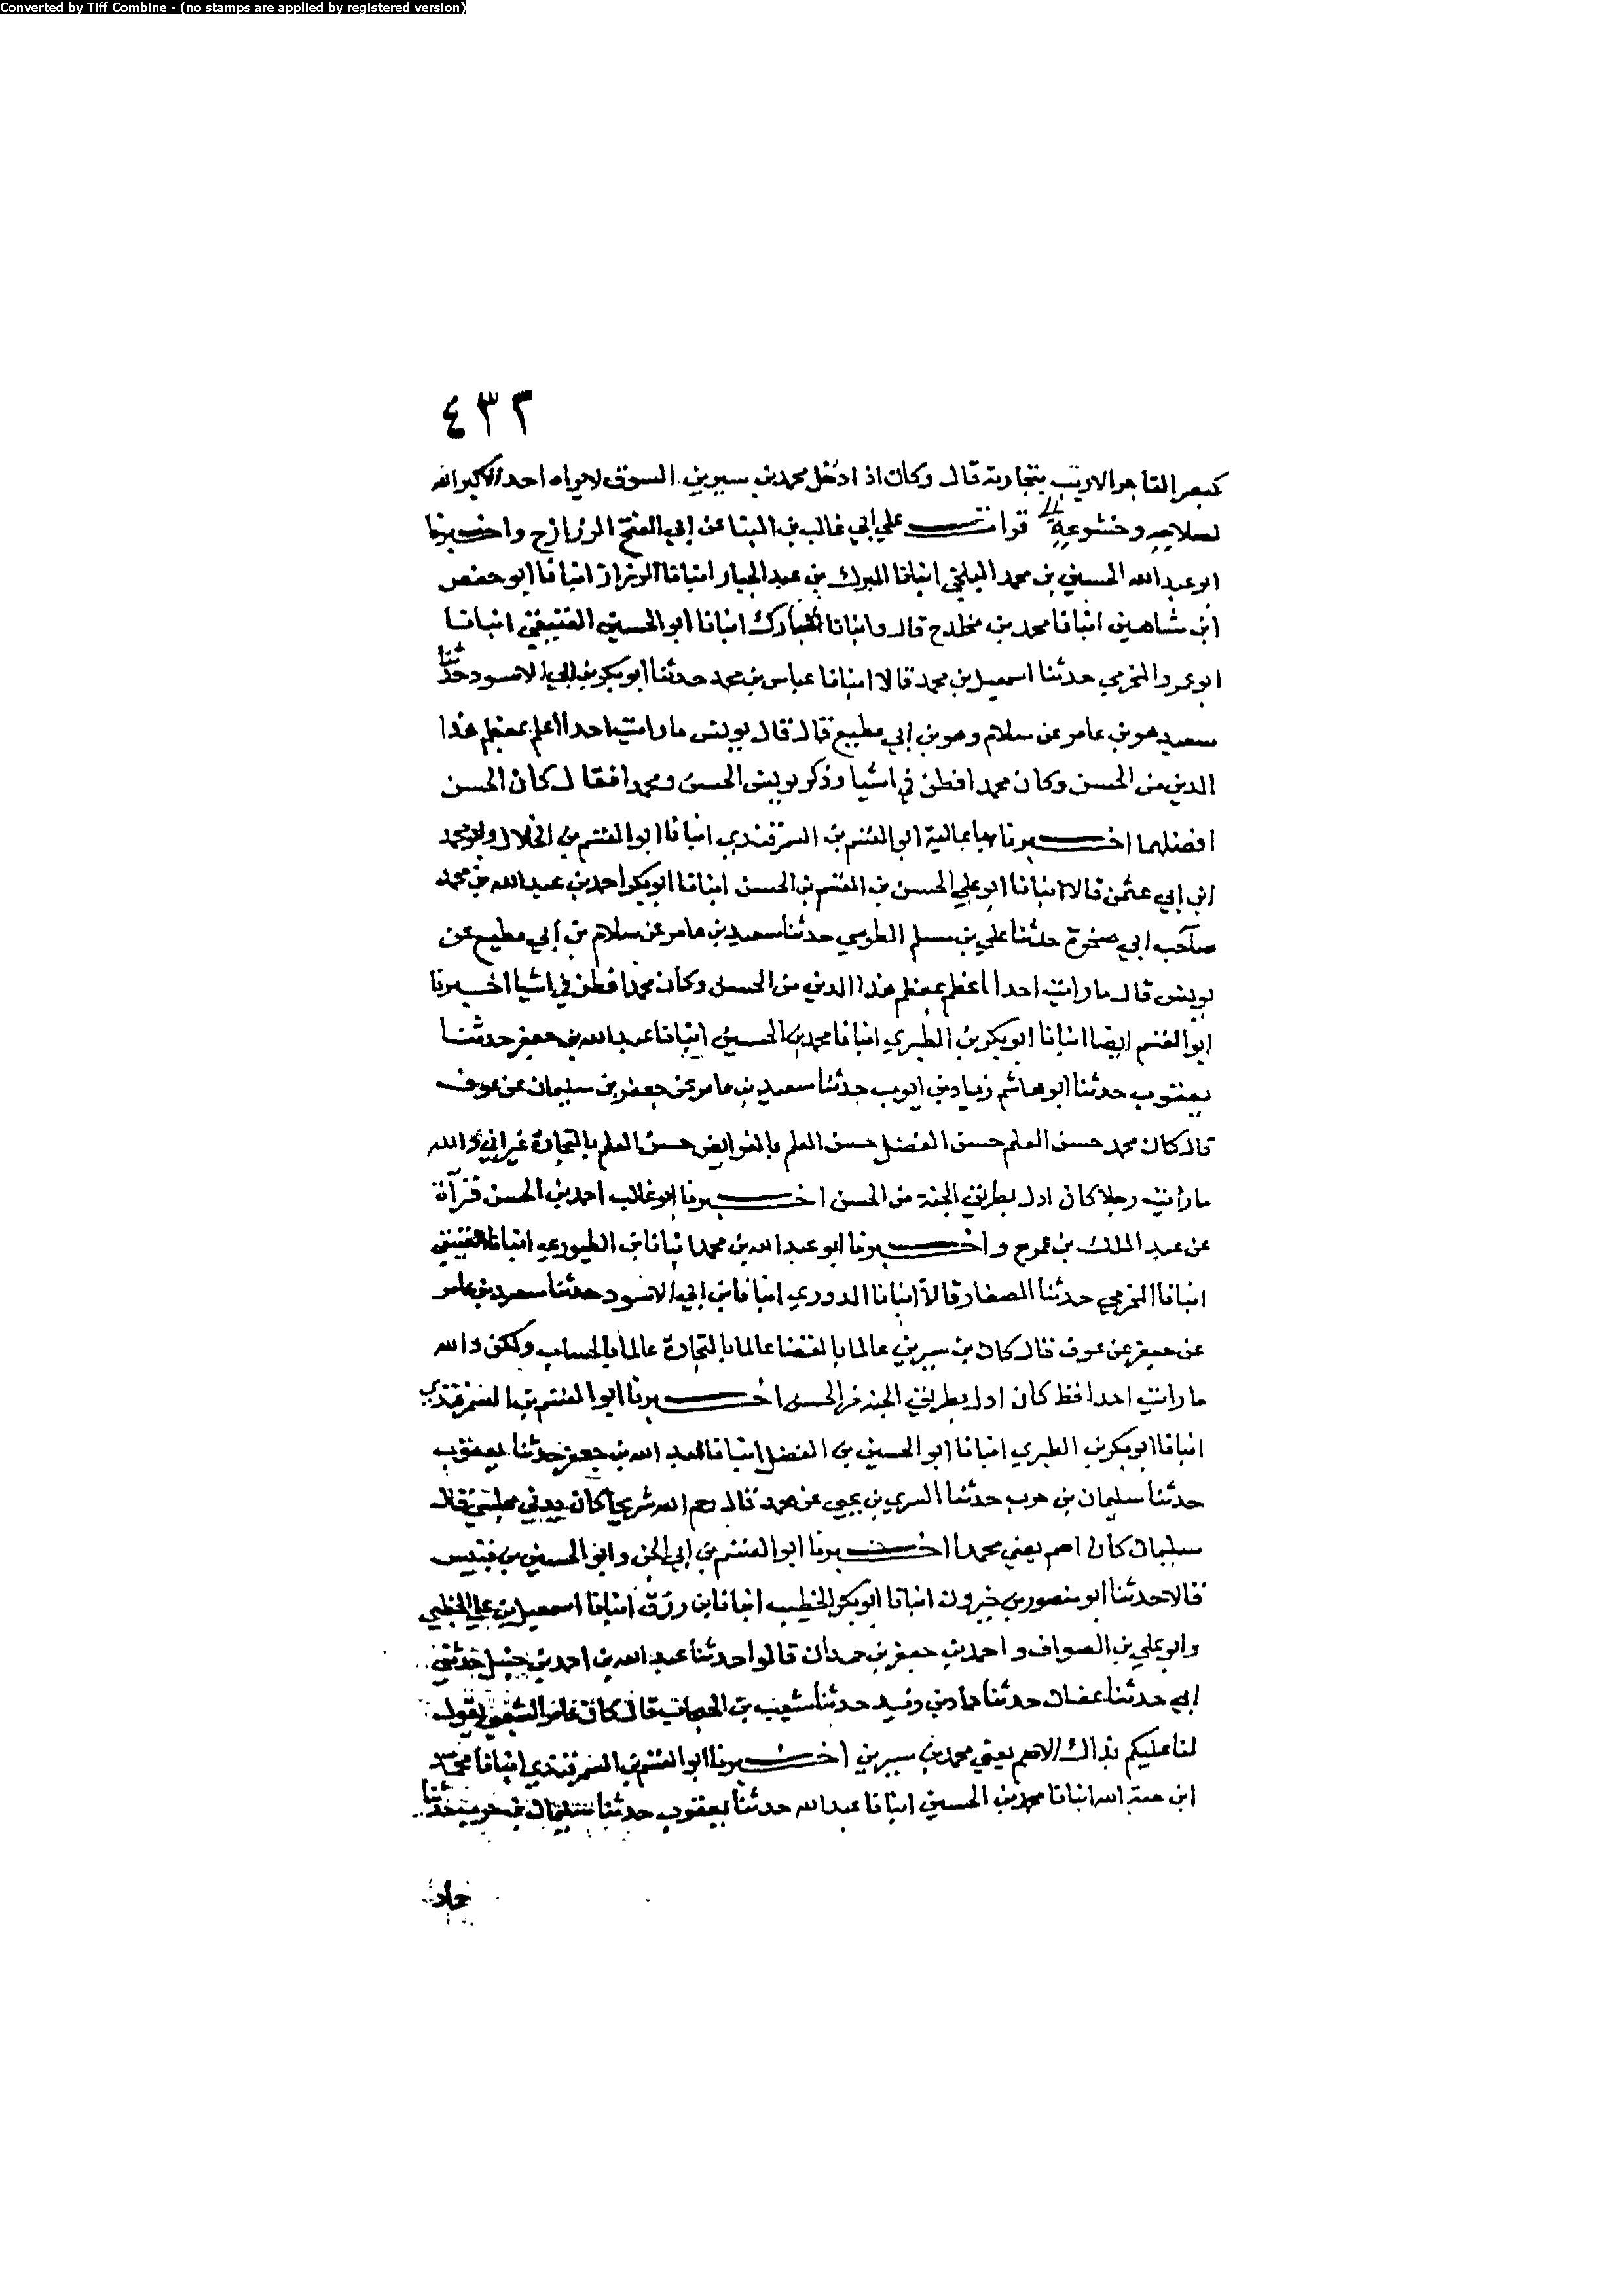 Converted by Tiff Combine - (no stamps are applied by registered version)
٤٣٢
كبصر التاجر الاريب بتجارته قال وكان اذا دخل محمد بن سيرين السوق لا يراه احد الا كبر الله
لصلاحه وخشوعه قرات على ابي غالب بن البنا عن ابي الفتح الرزاز ح واخبرنا
ابو عبد الله الحسين بن محمد البلخي انبانا المبرك بن عبد الجبار انبانا الرزاز انبانا ابو حفص
ابن شاهين انبانا محمد بن مخلد ح قال وانبانا المبارك انبانا ابو الحسين العتيقي انبانا
ابو عمرو المخرمي حدثنا اسمعيل بن محمد قالا انبانا عباس بن محمد حدثنا ابو بكر بن ابي الاسود حدثنا
سعيد هو بن عامر عن سلام وهو بن ابي مطيع قال قال يونس ما رايت احدا اعلم بعظم هذا
الدين من الحسن وكان محمد افطن في اشيا وذكر يونس الحسن ومحمدا فقال كان الحسن
افضلهما اخبرنا بها عالية ابو القسم بن السمرقندي انبانا ابو القسم بن الخلال وابو محمد
ابن ابي عثمن قالا انبانا ابو علي الحسن بن القسم بن الحسن انبانا ابو بكر احمد بن عبد الله بن محمد
صاحب ابي صخرة حدثنا علي بن مسلم الطوسي حدثنا سعيد بن عامر عن سلام بن ابي مطيع عن
يونس قال ما رايت احدا اعظم بعظم هذا الدين من الحسن وكان محمد افطن في اشيا اخبرنا
ابو القسم ايضا انبانا ابو بكر بن الطبري انبانا محمد بن الحسين انبانا عبد الله بن جعفر حدثنا
يعقوب حدثنا ابو هاشم زياد بن ايوب حدثنا سعيد بن عامر عن جعفر بن سليمان عن عوف
قال كان محمد حسن العلم حسن الفضل حسن العلم بالفرايض حسن العلم بالتجارة غير اني والله
ما رايت رجلا كان ادل بطريق الجنة من الحسن اخبرنا ابو غالب احمد بن الحسن قرآة
عن عبد الملك بن عمر ح واخبرنا ابو عبد الله بن محمد انبانا بن الطيوري انبانا العتيقي
انبانا المخرمي حدثنا الصفار قالا انبانا الدوري انبانا بن ابي الاسود حدثنا سعيد بن عامر
عن جعفر عن عوف قال كان بن سيرين عالما بالقضا عالما بالتجارة عالما بالحساب ولكن والله
ما رايت احدا قط كان ادل بطريق الجنة من الحسن اخبرنا ابو القسم بن السمرقندي
انبانا ابو بكر بن الطبري انبانا ابو الحسين بن الفضل انبانا عبد الله بن جعفر حدثنا يعقوب
حدثنا سليمان بن حرب حدثنا السري بن يحيى عن محمد قال رحم الله شريحا كان يدني مجلسي قال
سليمان كان اصم يعني محمدا اخبرنا ابو القسم بن ابي الجن وابو الحسين بن قبيس
قالا حدثنا ابو منصور بن خيرون انبانا ابو بكر الخطيب انبانا بن رزق انبانا اسمعيل بن علي الخطبي
وابو علي بن الصواف واحمد بن جعفر بن حمدان قالوا حدثنا عبد الله بن احمد بن حنبل حدثني
ابي حدثنا عفان حدثنا حماد بن زيد حدثنا شعيب بن الحبحاب قال كان عامر الشعبي يقول
لنا عليكم بذاك الاصم يعني محمد بن سيرين اخبرنا ابو القسم بن السمرقندي انبانا محمد
ابن هبة الله انبانا محمد بن الحسين انبانا عبد الله حدثنا يعقوب حدثنا سليمان بن حرب حدثنا
حماد